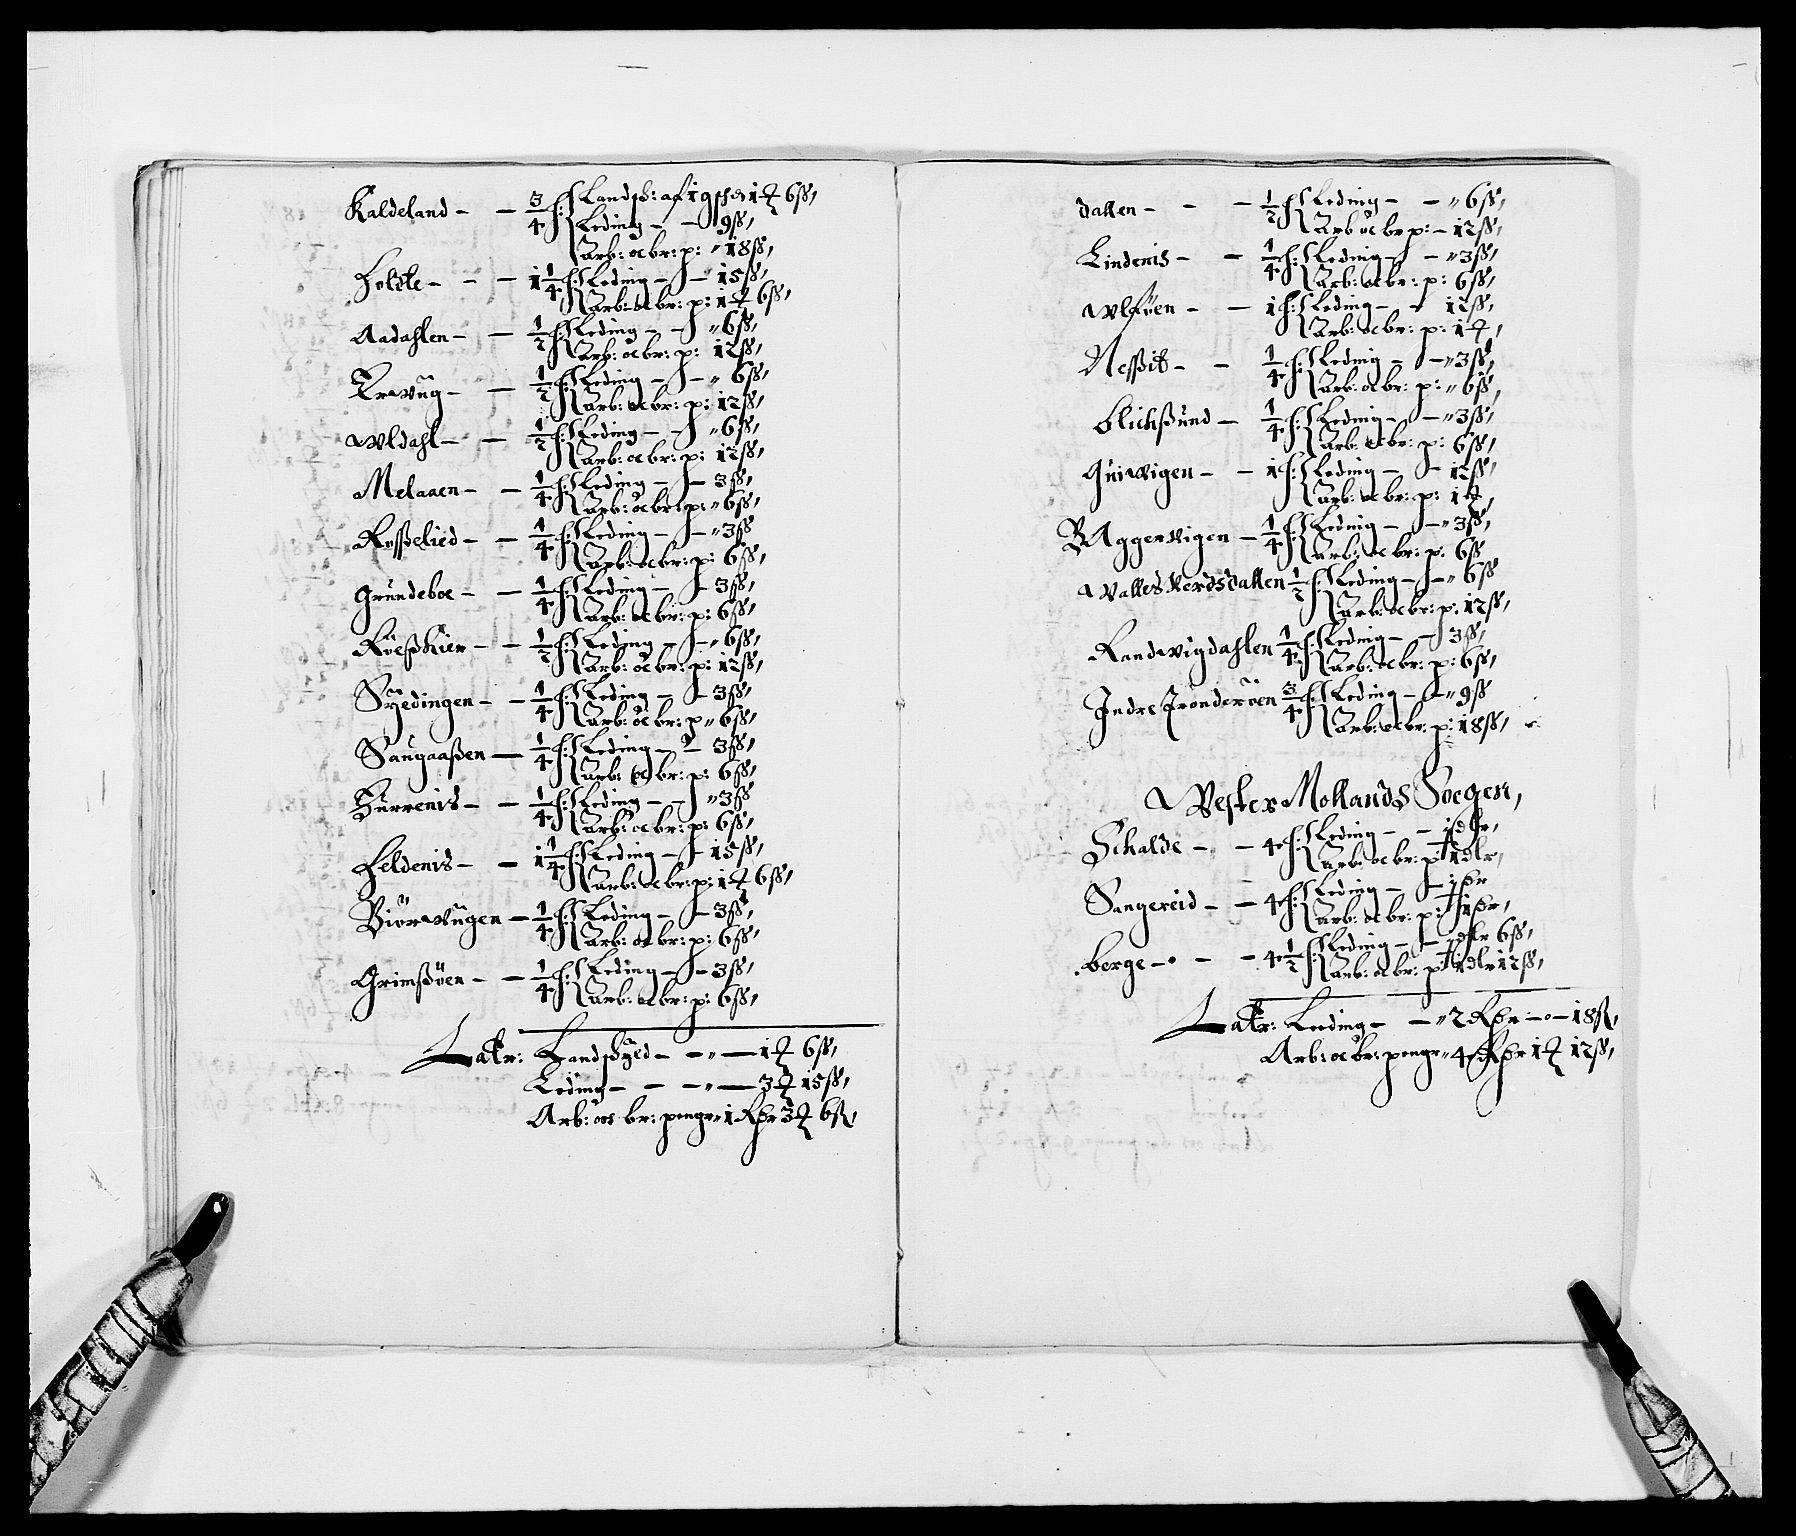 Kaldeland - - 3/4 h: Landsk: af 1 gsh er 1 ʠ 6 ß,
Leding - - 9 ß,
Arb: oc br: p: " 18 ß,
Foldte - - - 1 1/4 h: Leding - - " 15 ß,
Arb: oc br: p: 1 ʠ 6 ß,
Aadahlen - - 1/2 h: Leding - - " 6 ß,
Arb: oc br: p: 12 ß,
- 1/2 h: Leding - - " 6 ß,
Arb: oc br: p: 12 ß,
Wldahl - - 1/2 h: Leding - - " 6 ß,
Arb: oc br: p: 12 ß,
Melaaen - - 1/4 h: Leding - - 3 ß,
Arb: oc br: p: " 6 ß,
Rosselied - - 1/4 h: Leding - - " 3 ß
Arb: oc br: p: 6 ß,
Grundeboe - - 1/4 h: Leding - - 3 ß,
Arb: oc br: p: 6 ß,
Röeßkier - - 1/2 h: Leding - - " 6 ß,
Arb: oc br: p: 12 ß,
Syedingen - - 1/4 h: Leding - - 3 ß,
Arb: oc br: p " 6 ß,
Saugaaßen - 1/4 h: Leding - - 3 ß,
Arb: oc br: p: 6 ß,
Hurrenis - - 1/4 h: Leding - - " 3 ß
Arb: oc br: p: 6 ß,
Feldenis - - 1 1/4 h: Leding - - 15 ß,
Arb: oc br: p: 1 ʠ 6 ß,
Biörwugen - 1/4 h: Leding - - 3 ß,
Arb: oc br: p: 6 ß,
Grimßöen - - 1/4 h: Leding - - 3 ß,
Arb: oc br: p: 6 ß,
Latr: Landskyld - - " - 1 ʠ 6 ß,
Leding - - - " - 3 ʠ 15 ß,
Arb: oc br: penge " 1 Rdr 3 ʠ 6 ß,
Dallen - - - 1/2 h: Leding - - " 6 ß,
Arb oc br p: - 12 ß,
Lindenis - - 1/4 h: Leding - - " 3 ß,
Arb: oc br: p: 6 ß,
Wlföen - - 1 h: Leding - - 12 ß,
Arb: oc br: p: 1 ʠ,
Nessit - - 1/4 h: Leding - - " 3 ß,
Arb: oc br: p: " 6 ß,
Blichßund - 1/4 h: Leding - - " 3 ß,
Arb: oc br: p: 6 ß,
Guiwigen - - 1 h: Leding - - 12 ß,
Arb: oc br: p: 1 ʠ,
Raggerwigen - 1/4 h: Leding - - " 3 ß,
Arb: oc br: p: 6 ß
Walleswerdsdallen 1/2 h: Leding - - " 6 ß
Arb: oc br: p: 12 ß,
Randwigdahlen 1/4 h: Leding - - 3 ß,
Arb: oc br: p: 6 ß,
Indre Trönderöen 3/4 h: Leding - - " 9 ß
Arb: oc br: p: 18 ß,
Wester Mollands Soegen,
Schalde - - 4 h: Leding - - 1 dlr,
Arb: oc br: p 1 dlr,
Sangereid - - 4 h: Leding - -
Arb: oc br: p:
Berge - - - 4 1/2 h: Leding - - dlr 6 ß,
Arb: oc br: p 1 dlr 12 ß,
Latr: Leding - - " 2 Rdr - o - 18 ß,
Arb: oc br: penge " 4 Rdr 1 ʠ 12 ß,